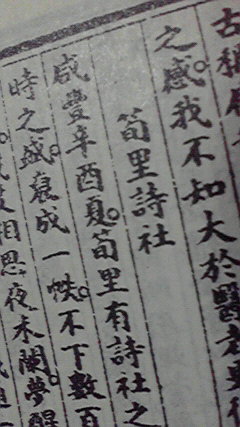 古稱
之感。我不知大於醫者更
筍里詩社
咸豐辛酉夏。筍里有詩社之
時之盛。裒成一帙。不下數百
相思夜未闌。夢醒